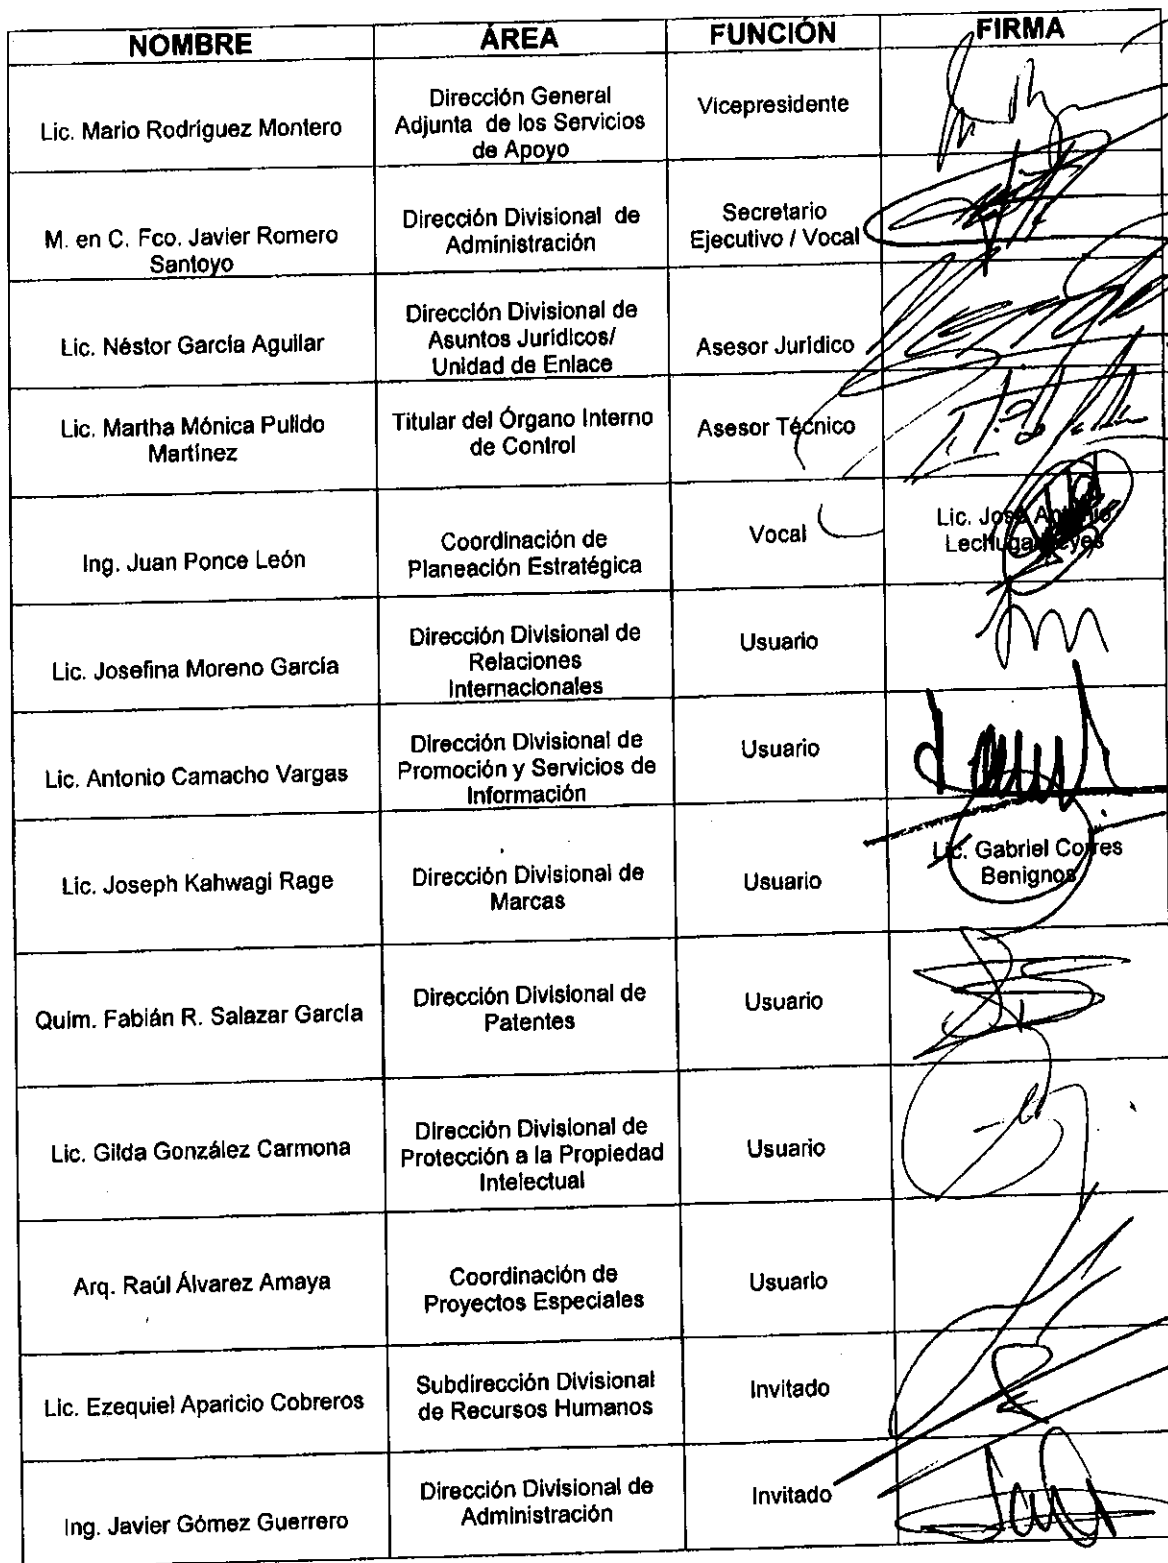 NOMBRE ÁREA FUNCIÓN FIRMA
Lic. Mario Rodríguez Montero
Dirección General
Adjunta de los Servicios
de Apoyo
Vicepresidente
M. en C. Fco. Javier Romero
Santoyo
Dirección Divisional de
Administración
Secretario
Ejecutivo / Vocal
Lic. Néstor García Aguilar
Dirección Divisional de
Asuntos Jurídicos/
Unidad de Enlace
Asesor Jurídico
Lic. Martha Mónica Pulido
Martínez
Titular del Órgano Interno
de Control
Asesor Técnico
Ing. Juan Ponce León
Coordinación de
Planeación Estratégica
Vocal
Lic. José Antonio
Lechuga Reyes
Lic. Josefina Moreno García
Dirección Divisional de
Relaciones
Internacionales
Usuario
Lic. Antonio Camacho Vargas
Dirección Divisional de
Promoción y Servicios de
Información
Usuario
Lic. Joseph Kahwagi Rage
Dirección Divisional de
Marcas
Usuario
Lic. Gabriel Corres
Benignos
Quim. Fabián R. Salazar García
Dirección Divisional de
Patentes
Usuario
Lic. Gilda González Carmona
Dirección Divisional de
Protección a la Propiedad
Intelectual
Usuario
Arq. Raúl Álvarez Amaya
Coordinación de
Proyectos Especiales
Usuario
Lic. Ezequiel Aparicio Cobreros
Subdirección Divisional
de Recursos Humanos
Invitado
Ing. Javier Gómez Guerrero
Dirección Divisional de
Administración
Invitado